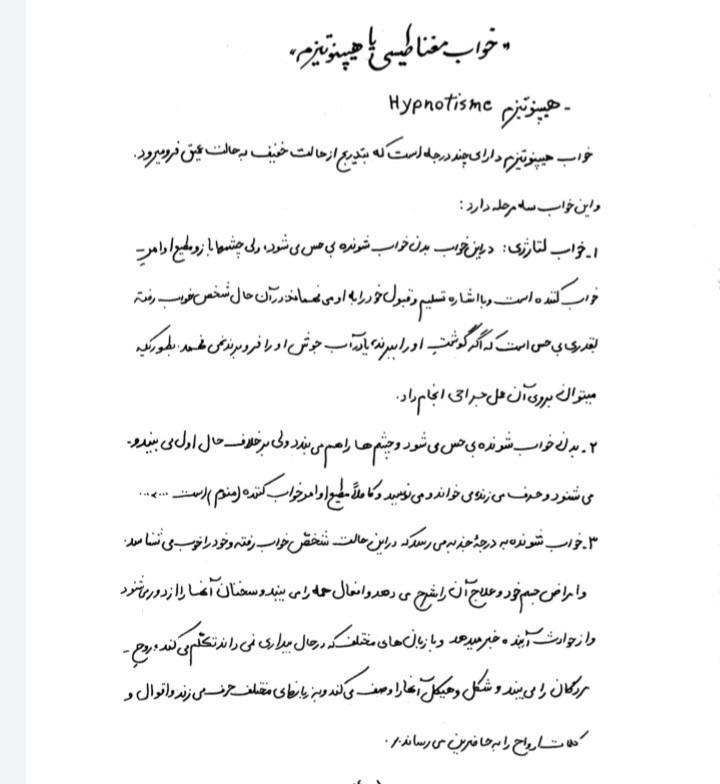 «خواب مغناطیسی یا هیپنوتیزم»
- هیپنوتیزم Hypnotisme
خواب هیپنوتیزم دارای چند درجه است که بتدریج از حالت خفیف به حالت عمیق فرو میرود.
واین خواب سه مرحله دارد:
۱- خواب لتارژی: دراین خواب بدن خواب شونده بی حس می شود، ولی چشمها باز و مطیع اوامر
خواب کننده است وبا اشاره تسلیم و قبول خود را به او می فهماند در آن حال شخص خواب رفته
بقدری بی حس است که اگر گوشت او را ببرند یا در آب جوش او را فرو برند نمی فهمد. بطوریکه
میتوان بروی آن عمل جراحی انجام داد.
۲- بدن خواب شونده بی حس می شود و چشم ها را هم می بندد ولی بر خلاف حال اول می بیند و
می شنود و حرف می زند می خواند و می نویسد و کاملاً مطیع اوامر خواب کننده (منوم) است ......
۳- خواب شونده به درجۀ جذبه می رسد که دراین حالت شخص خواب رفته و خود را خوب می شناسد.
وامراض جسم خود و علاج آن را شرح می دهد وافعال همه را می بیند و سخنان آنها را از دور می شنود
واز حوادث آینده خبر میدهد و با زبان های مختلف که در حال بیداری نمی داند تکلم می کند و روح -
مردگان را می بیند و شکل و هیکل آنها را وصف می کند و به زبانهای مختلف حرف می زند و اقوال و
کلمات ارواح را به حاضرین می رساند.